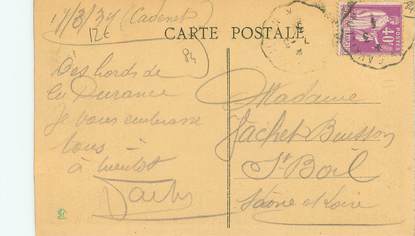 17/3/34 (Cadenet)
12€
84
CARTE POSTALE
POSTES
40c
Des bords de
la Durance
Je vous embrasse
tous -
à bientôt
Madame
Jachet Buisson
St Boil
Saône et Loire